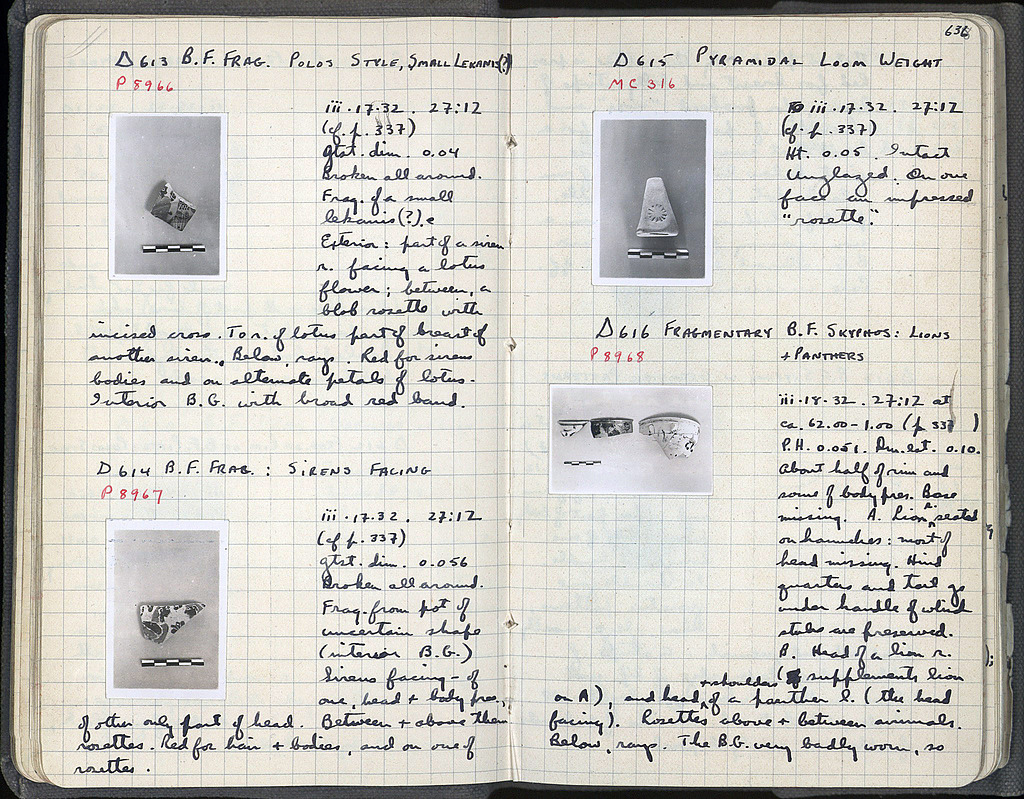 Δ 613 B.F. FRAG. POLOS STYLE, SMALL LEKANIS(?)
P 8966
iii.17.32. 27:12
(cf. p. 337)
gtst. dim. 0.04
Broken all around.
Frag. of a small
lekanis(?).
Exterior: part of a siren
r. facing a lotus
flower; between, a
blob rosette with
incised cross. To r. of lotus part of breast of
another siren. Below, rays. Red for sirens
bodies and on alternate petals of lotus.
Interior B.G. with broad red band.
Δ 614 B.F. FRAG.: SIRENS FACING
P 8967
iii.17.32. 27:12
(cf p. 337)
gtst. dim. 0.056
Broken all around.
Frag. from pot of
uncertain shape
(interior B.G.)
Sirens facing – of
one, head + body pres.,
of other only part of head. Between + above them
rosettes. Red for hair + bodies, and on one of
rosettes.
636
Δ 615 PYRAMIDAL LOOM WEIGHT
MC 316
iii.17.32. 27:12
(cf. p. 337)
Ht. 0.05. Intact
Unglazed. On one
face an impressed
"rosette".
Δ 616 FRAGMENTARY B.F. SKYPHOS: LIONS
+ PANTHERS
P 8968
iii.18.32. 27:12 at
ca. 62.00-1.00 (p. 337 )
P.H. 0.051. Dm. est. 0.10.
About half of rim and
some of body pres. Base
missing. A. Lion r. seated
on haunches: most of
head missing. Hind
quarters and tail go
under handle of which
stubs are preserved.
B. Head of a lion r.
(supplements lion
on A), and head + shoulders of a panther l. (the head
facing). Rosettes above + between animals.
Below, rays. The B.G. very badly worn, so